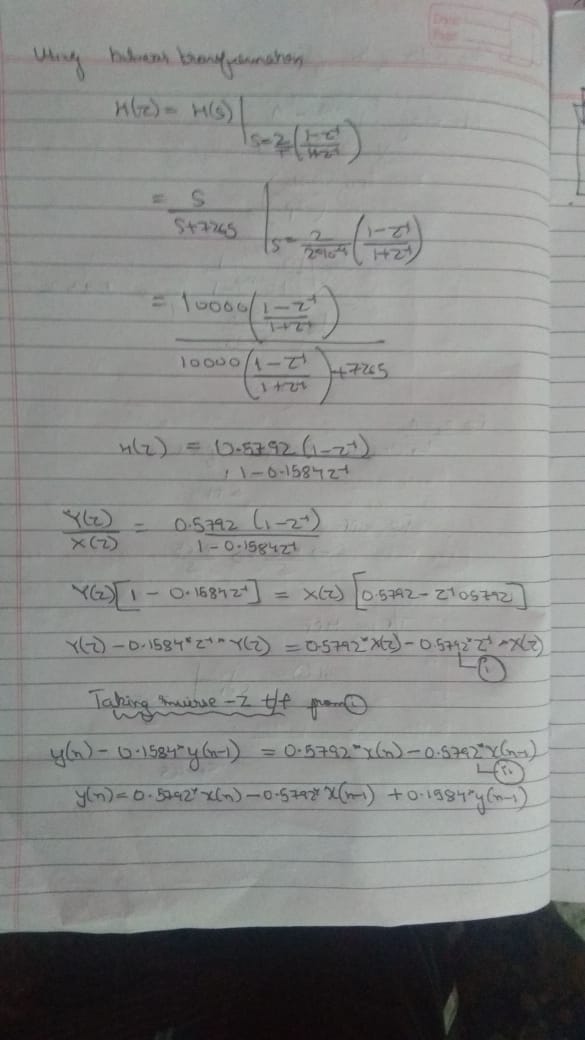 Date:
Page:
Using transformation
H(z) = H(s) | s = 2/T ( 1-z⁻¹ / 1+z⁻¹ )
= s / s+7265 | s = 2 / 2*10⁻⁴ ( 1-z⁻¹ / 1+z⁻¹ )
= 10000 ( 1-z⁻¹ / 1+z⁻¹ ) / 10000 ( 1-z⁻¹ / 1+z⁻¹ ) + 7265
H(z) = 0.5792 (1-z⁻¹) / 1-0.1584z⁻¹
Y(z) / X(z) = 0.5792 (1-z⁻¹) / 1-0.1584z⁻¹
Y(z) [ 1 - 0.1584z⁻¹ ] = X(z) [ 0.5792 - z⁻¹ 0.5792 ]
Y(z) - 0.1584*z⁻¹*Y(z) = 0.5792*X(z) - 0.5792*z⁻¹*X(z)
①
Taking inverse -Z t/f from ①
y(n) - 0.1584*y(n-1) = 0.5792*x(n) - 0.5792*x(n-1)
y(n) = 0.5792*x(n) - 0.5792*x(n-1) + 0.1584*y(n-1)